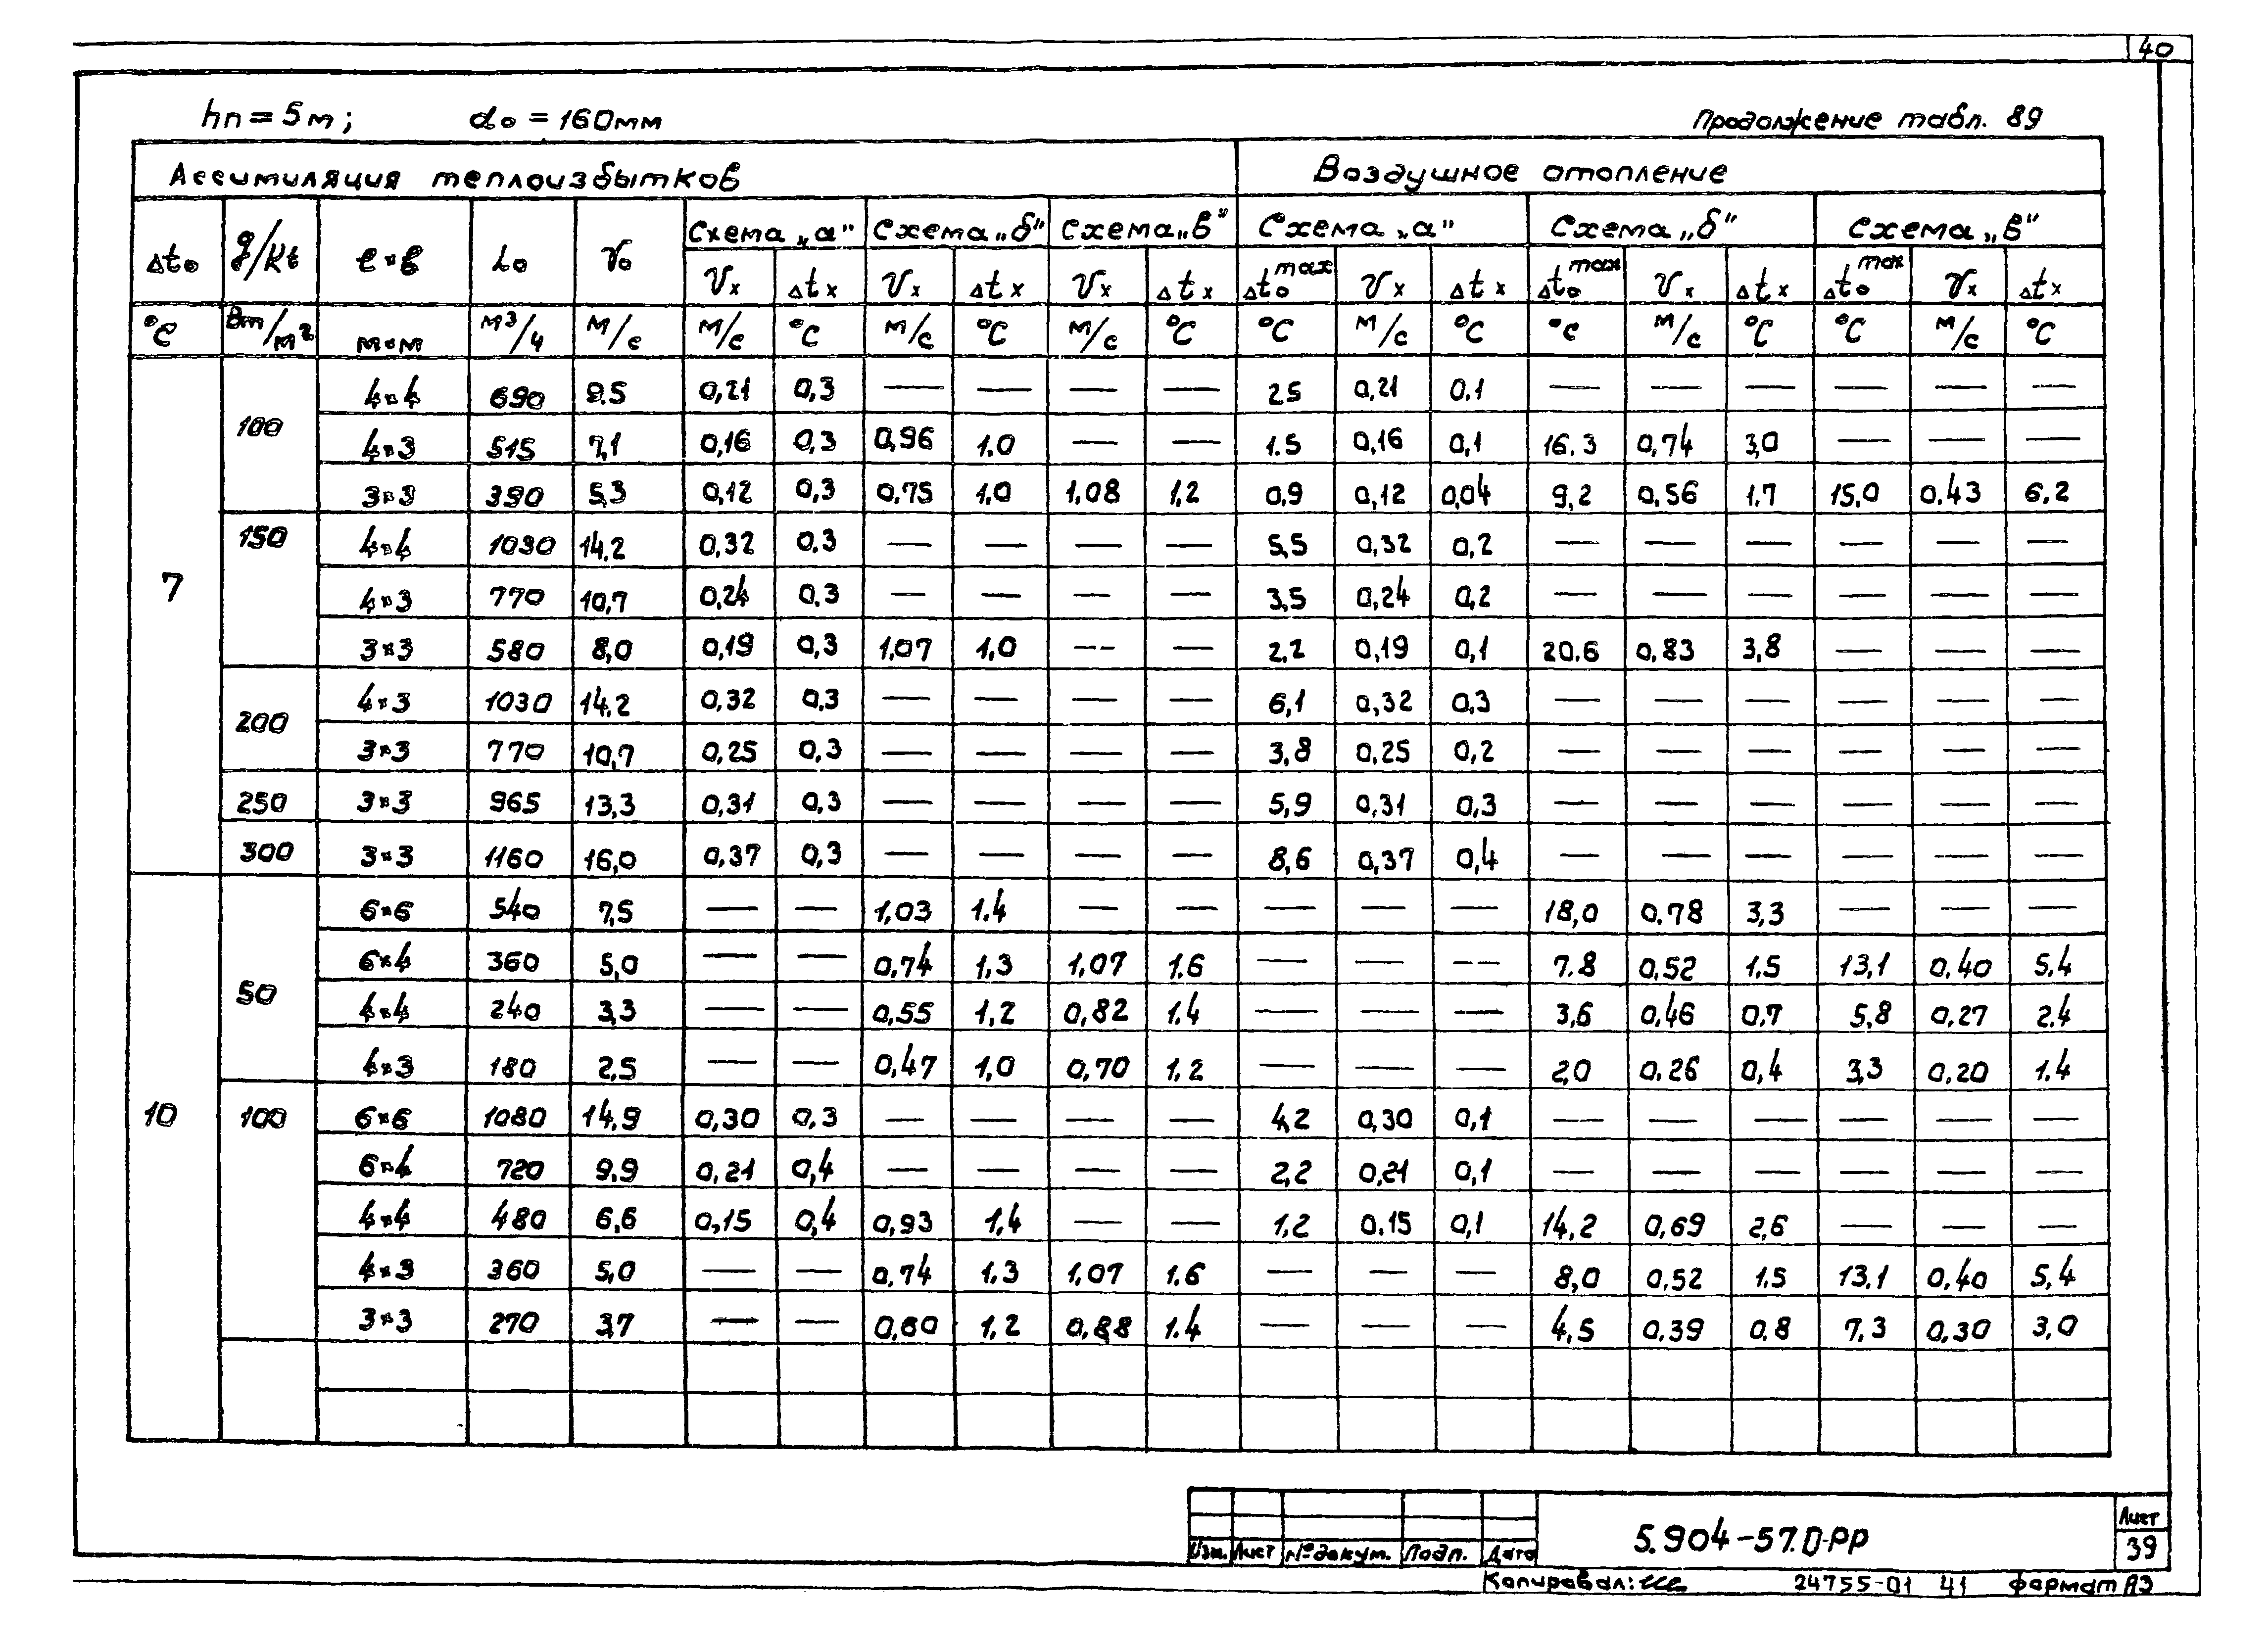 40
hп = 5м; do = 160мм Продолжение табл. 89
Ассимиляция теплоизбытков Воздушное отопление
Δto q/Kt l×b Lo Vo Схема „а" Схема „б" Схема „в" Схема „а" Схема „б" Схема „в"
Vx Δtx Vx Δtx Vx Δtx Δto max Vx Δtx Δto max Vx Δtx Δto max Vx Δtx
°C Вт/м² м×м м³/ч м/с м/с °C м/с °C м/с °C °C м/с °C °C м/с °C °C м/с °C
7 100 4×4 690 9.5 0,21 0,3 — — — — 2.5 0,21 0.1 — — — — — —
4×3 515 7,1 0,16 0,3 0,96 1.0 — — 1.5 0,16 0,1 16.3 0,74 3,0 — — —
3×3 390 5,3 0,12 0,3 0,75 1,0 1,08 1,2 0,9 0,12 0,04 9,2 0,56 1.7 15,0 0.43 6.2
150 4×4 1030 14.2 0,32 0.3 — — — — 5,5 0,32 0,2 — — — — — —
4×3 770 10,7 0,24 0.3 — — — — 3,5 0,24 0,2 — — — — — —
3×3 580 8,0 0,19 0,3 1,07 1,0 — — 2,2 0,19 0,1 20.6 0,83 3,8 — — —
200 4×3 1030 14,2 0,32 0,3 — — — — 6,1 0,32 0,3 — — — — — —
3×3 770 10,7 0,25 0,3 — — — — 3,8 0,25 0,2 — — — — — —
250 3×3 965 13,3 0,31 0,3 — — — — 5,9 0,31 0,3 — — — — — —
300 3×3 1160 16,0 0,37 0,3 — — — — 8,6 0,37 0,4 — — — — — —
10 50 6×6 540 7,5 — — 1,03 1.4 — — — — — 18,0 0.78 3,3 — — —
6×4 360 5,0 — — 0,74 1,3 1,07 1.6 — — — 7.8 0,52 1,5 13,1 0.40 5.4
4×4 240 3,3 — — 0,55 1,2 0,82 1.4 — — — 3,6 0,46 0.7 5,8 0,27 2.4
4×3 180 2,5 — — 0,47 1,0 0,70 1.2 — — — 2,0 0.26 0,4 3,3 0.20 1.4
100 6×6 1080 14.9 0,30 0,3 — — — — 4,2 0,30 0,1 — — — — — —
6×4 720 9.9 0,21 0,4 — — — — 2,2 0,21 0,1 — — — — — —
4×4 480 6,6 0,15 0,4 0,93 1,4 — — 1,2 0.15 0,1 14,2 0,69 2,6 — — —
4×3 360 5,0 — — 0,74 1.3 1,07 1.6 — — — 8,0 0.52 1.5 13.1 0,40 5,4
3×3 270 3,7 — — 0,60 1,2 0,88 1.4 — — — 4,5 0.39 0.8 7,3 0,30 3,0
5.904-57.0-РР
Лист
39
Изм. Лист № докум. Подп. Дата
Копировал: 24755-01 41 Формат А3